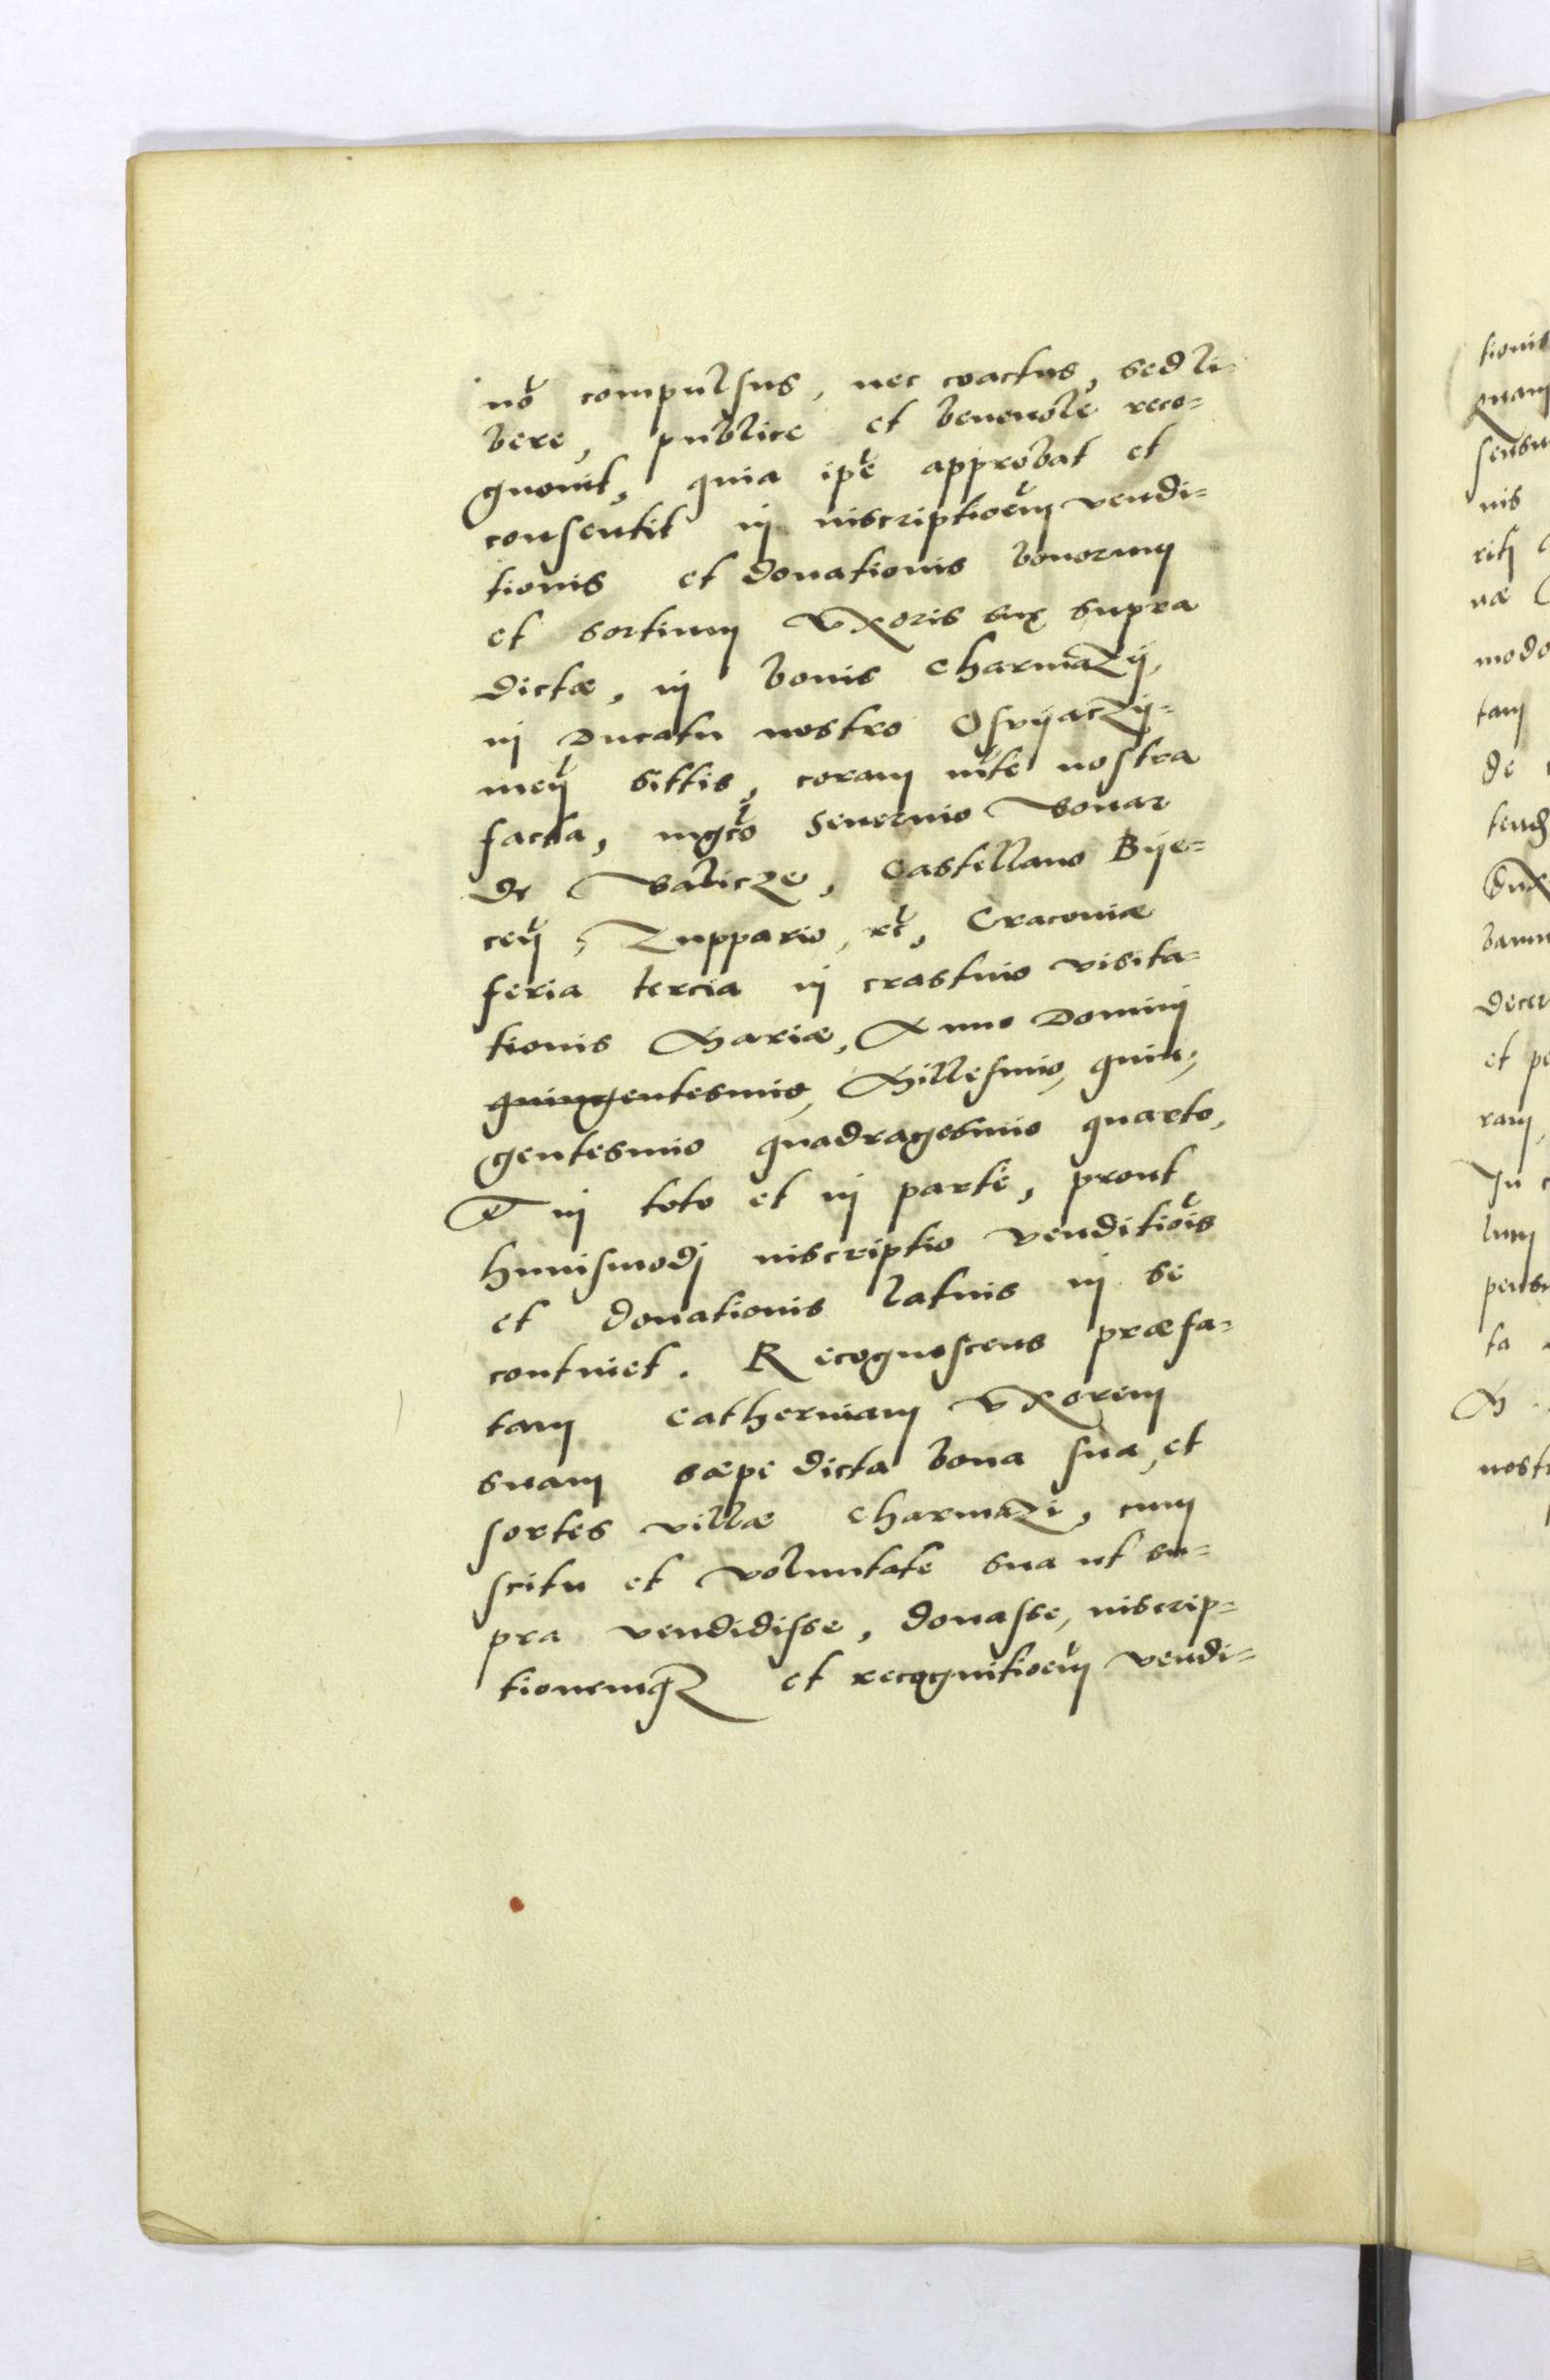 nõ compulsus, nec coactus, sed li-
bere, publice et beneuole reco-
gnouit, quia ipẽ approbat et
consentit in inscriptioẽm vendi-
tionis et donationis bonorum
et sortium vxoris suę supra
dictæ, in bonis charmązÿ,
in Ducatu nostro Osvÿaczÿ-
meñ sittis, coram mt̃e nostra
facta, mgc̃o Seuerino Bonar
de Balicze, Castellano Bÿe-
ceñ, Zuppario, rc̃, Cracouiæ
feria tercia in crastino visita-
tionis Mariæ, Anno Domini
quingentesimo, Millesimo, quin-
gentesimo quadragesimo quarto,
Et in toto et in parte, prout
huiusmodj inscriptio venditiõis
et donationis latius in se
continet. Recognoscens præfa-
tam Catherinam vxorem
suam sæpe dicta bona sua, et
sortes villæ charmązi, cum
scitu et voluntate sua ut su-
pra vendidisse, donasse, inscrip-
tionemqꝫ et recognitioẽm vendi-
tionis
quam
nis
modo
tam
de
et pe
ram,
In
lum
ta
M.